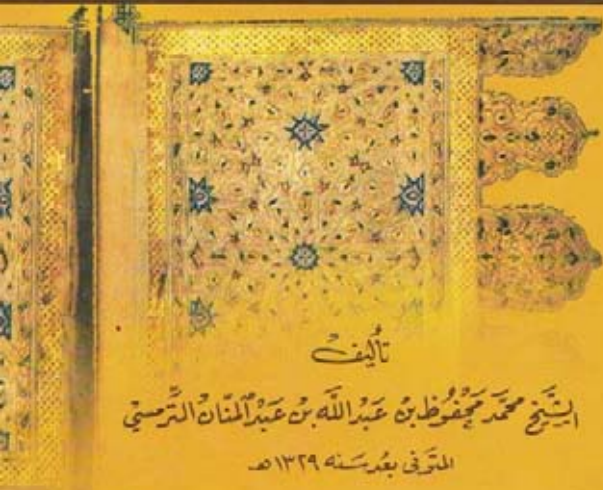 تأليف
الشيخ محمد محفوظ بن عبد الله بن عبد المنان الترمسي
المتوفى بعد سنة ١٣٢٩ هـ